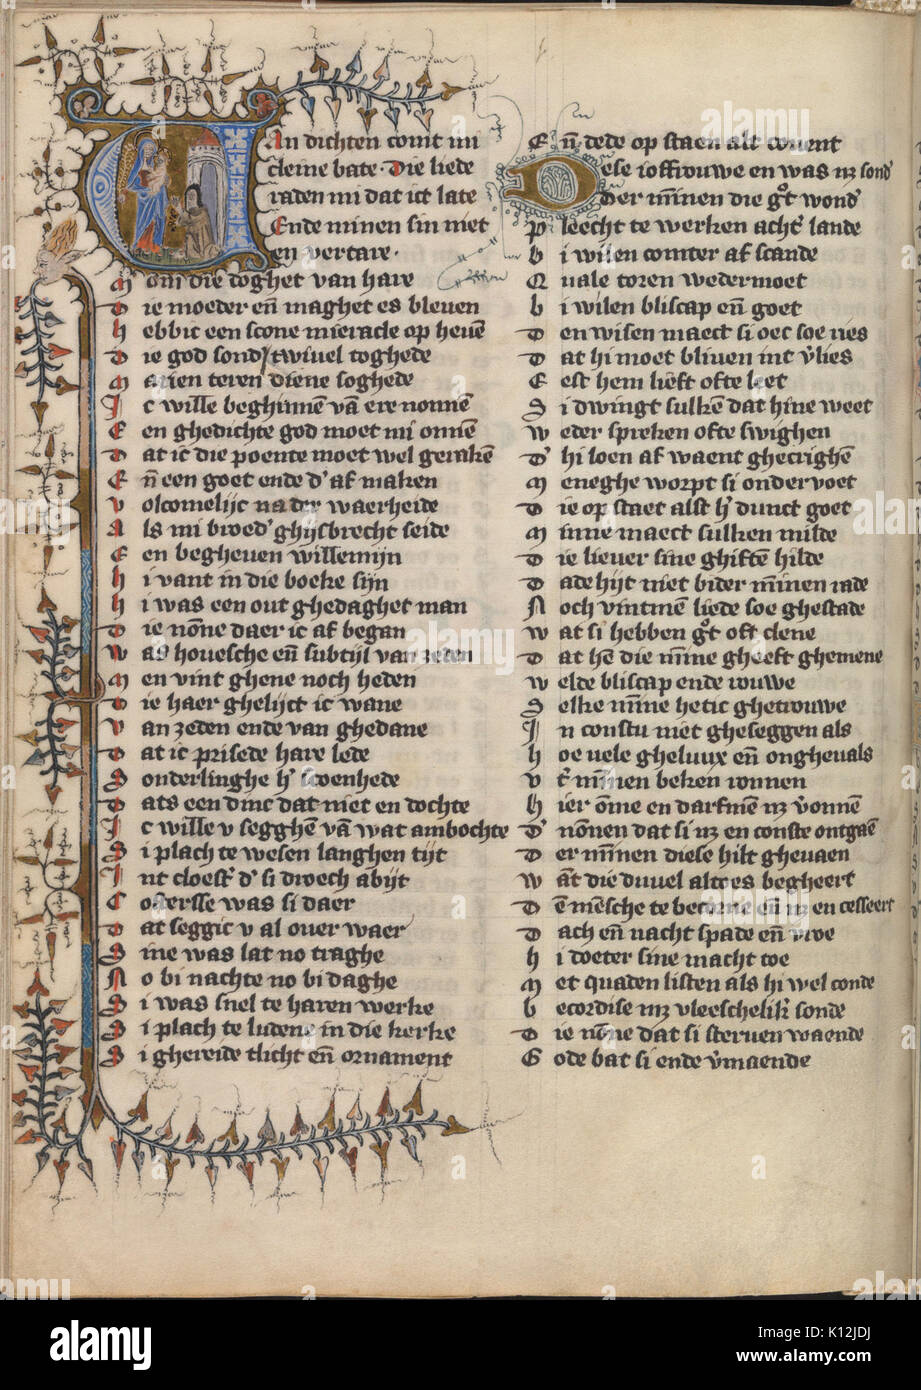 Van dichten comt mi
cleine bate · Die liede
raden mi dat ict late
Ende minen sin niet
en vertare ·
Om die doghet van hare
Die moeder en̄ maghet es bleuen
Hebbic een scone mieracle op heuē
Die god sond twiuel toghede
Marien teren diene soghede
Ic wille beghinnē vā ere nonnē
Een ghedichte god moet mi onnē
Dat ic die poente moet wel gerakē
En̄ een goet ende d' af maken
Volcomelijc na der waerheide
Als mi broed' ghijsbrecht seide
Een begheuen willemijn
Hi vant in die boeke sijn
Hi was een out ghedaghet man
Die nōne daer ic af began
Was houesche en̄ subtijl van zeden
Men vint ghene noch heden
Die haer ghelijct ic wane
Van zeden ende van ghedane
Dat ic prisede hare lede
Sonderlinghe h' scoenhede
Dats een dinc dat niet en dochte
Ic wille v segghē vā wat ambochte
Si plach te wesen langhen tijt
Int cloest' d' si droech abijt
Costersse was si daer
Dat seggic v al ouer waer
Sine was lat no traghe
No bi nachte no bi daghe
Si was snel te haren werke
Si plach te ludene in die kerke
Si ghereide tlicht en̄ ornament
En̄ dede op staen alt couent
Dese ioffrouwe en was n3 sond'
Der mīnen die g°t wond'
Pleecht te werken acht' lande
Bi wilen comter af scande
Quale toren wedermoet
Bi wilen bliscap en̄ goet
Den wisen maect si oec soe ries
Dat hi moet bliuen int v'lies
Eest hem lieft ofte leet
Si dwingt sulkē dat hine weet
Weder spreken ofte swighen
D' hi loen af waent ghecrighē
Meneghe worpt si onder voet
Die op staet alst h' dunct goet
Minne maect sulken milde
Die lieuer sine ghiftē hilde
Dade hijt niet bider mīnen rade
Noch vintmē liede soe ghestade
Wat si hebben g°t oft clene
Dat hē die mīne gheeft ghemene
Welde bliscap ende rouwe
Selke mīne hetic ghetrouwe
In constu niet gheseggen als
Hoe vele gheluux en̄ ongheuals
Vt' mīnen beken ronnen
Hier ōme en darfmē n3 v'onnē
D' nōnen dat si n3 en conste ontgaē
Der mīnen diese hilt gheuaen
Want die duuel altoes begheert
Dē mēsche te becorne en̄ n3 en cesseert
Dach en̄ nacht spade en̄ vroe
Hi doeter sine macht toe
Met quaden listen als hi wel conde
Becordise m3 vleeschelik' sonde
Die nōne dat si steruen waende
Gode bat si ende v'maende
alamy
K12JDJ